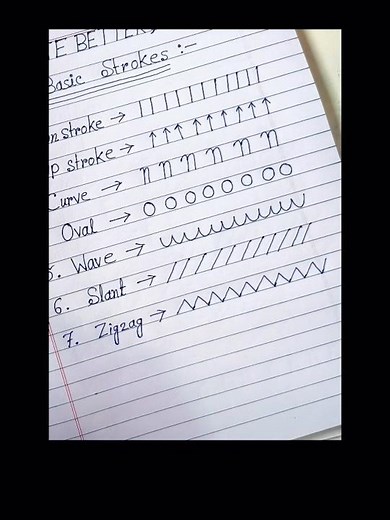 TE BETTER,
Basic Strokes :-
n stroke →
p stroke →
Curve →
Oval →
5. Wave →
6. Slant →
7. Zigzag →